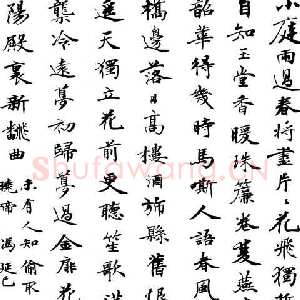 小庭雨過春將盡片片花飛獨
自知玉堂香暖珠簾卷雙燕
韶華得幾時馬嘶人語春風
橋邊落日高樓酒旆懸舊恨
遙天獨立花前更聽笙歌滿
櫳冷遠夢初歸夢過金扉花
陽殿裏新翻曲
未有人知偷取
曉啼 馮延巳
Shufawang.CN